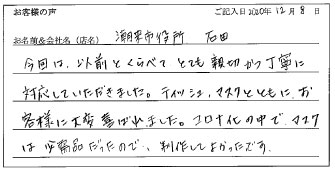 お客様の声　ご記入日 2020年 12月 8日
お名前&会社名（店名）　潮来市役所　石田
今回は、以前とくらべて とても 親切かつ丁寧に
対応していただきました。ティッシュ、マスクとともに、お
客様に大変喜ばれました。コロナ化の中で、マスク
は必需品だったので、制作してよかったです。